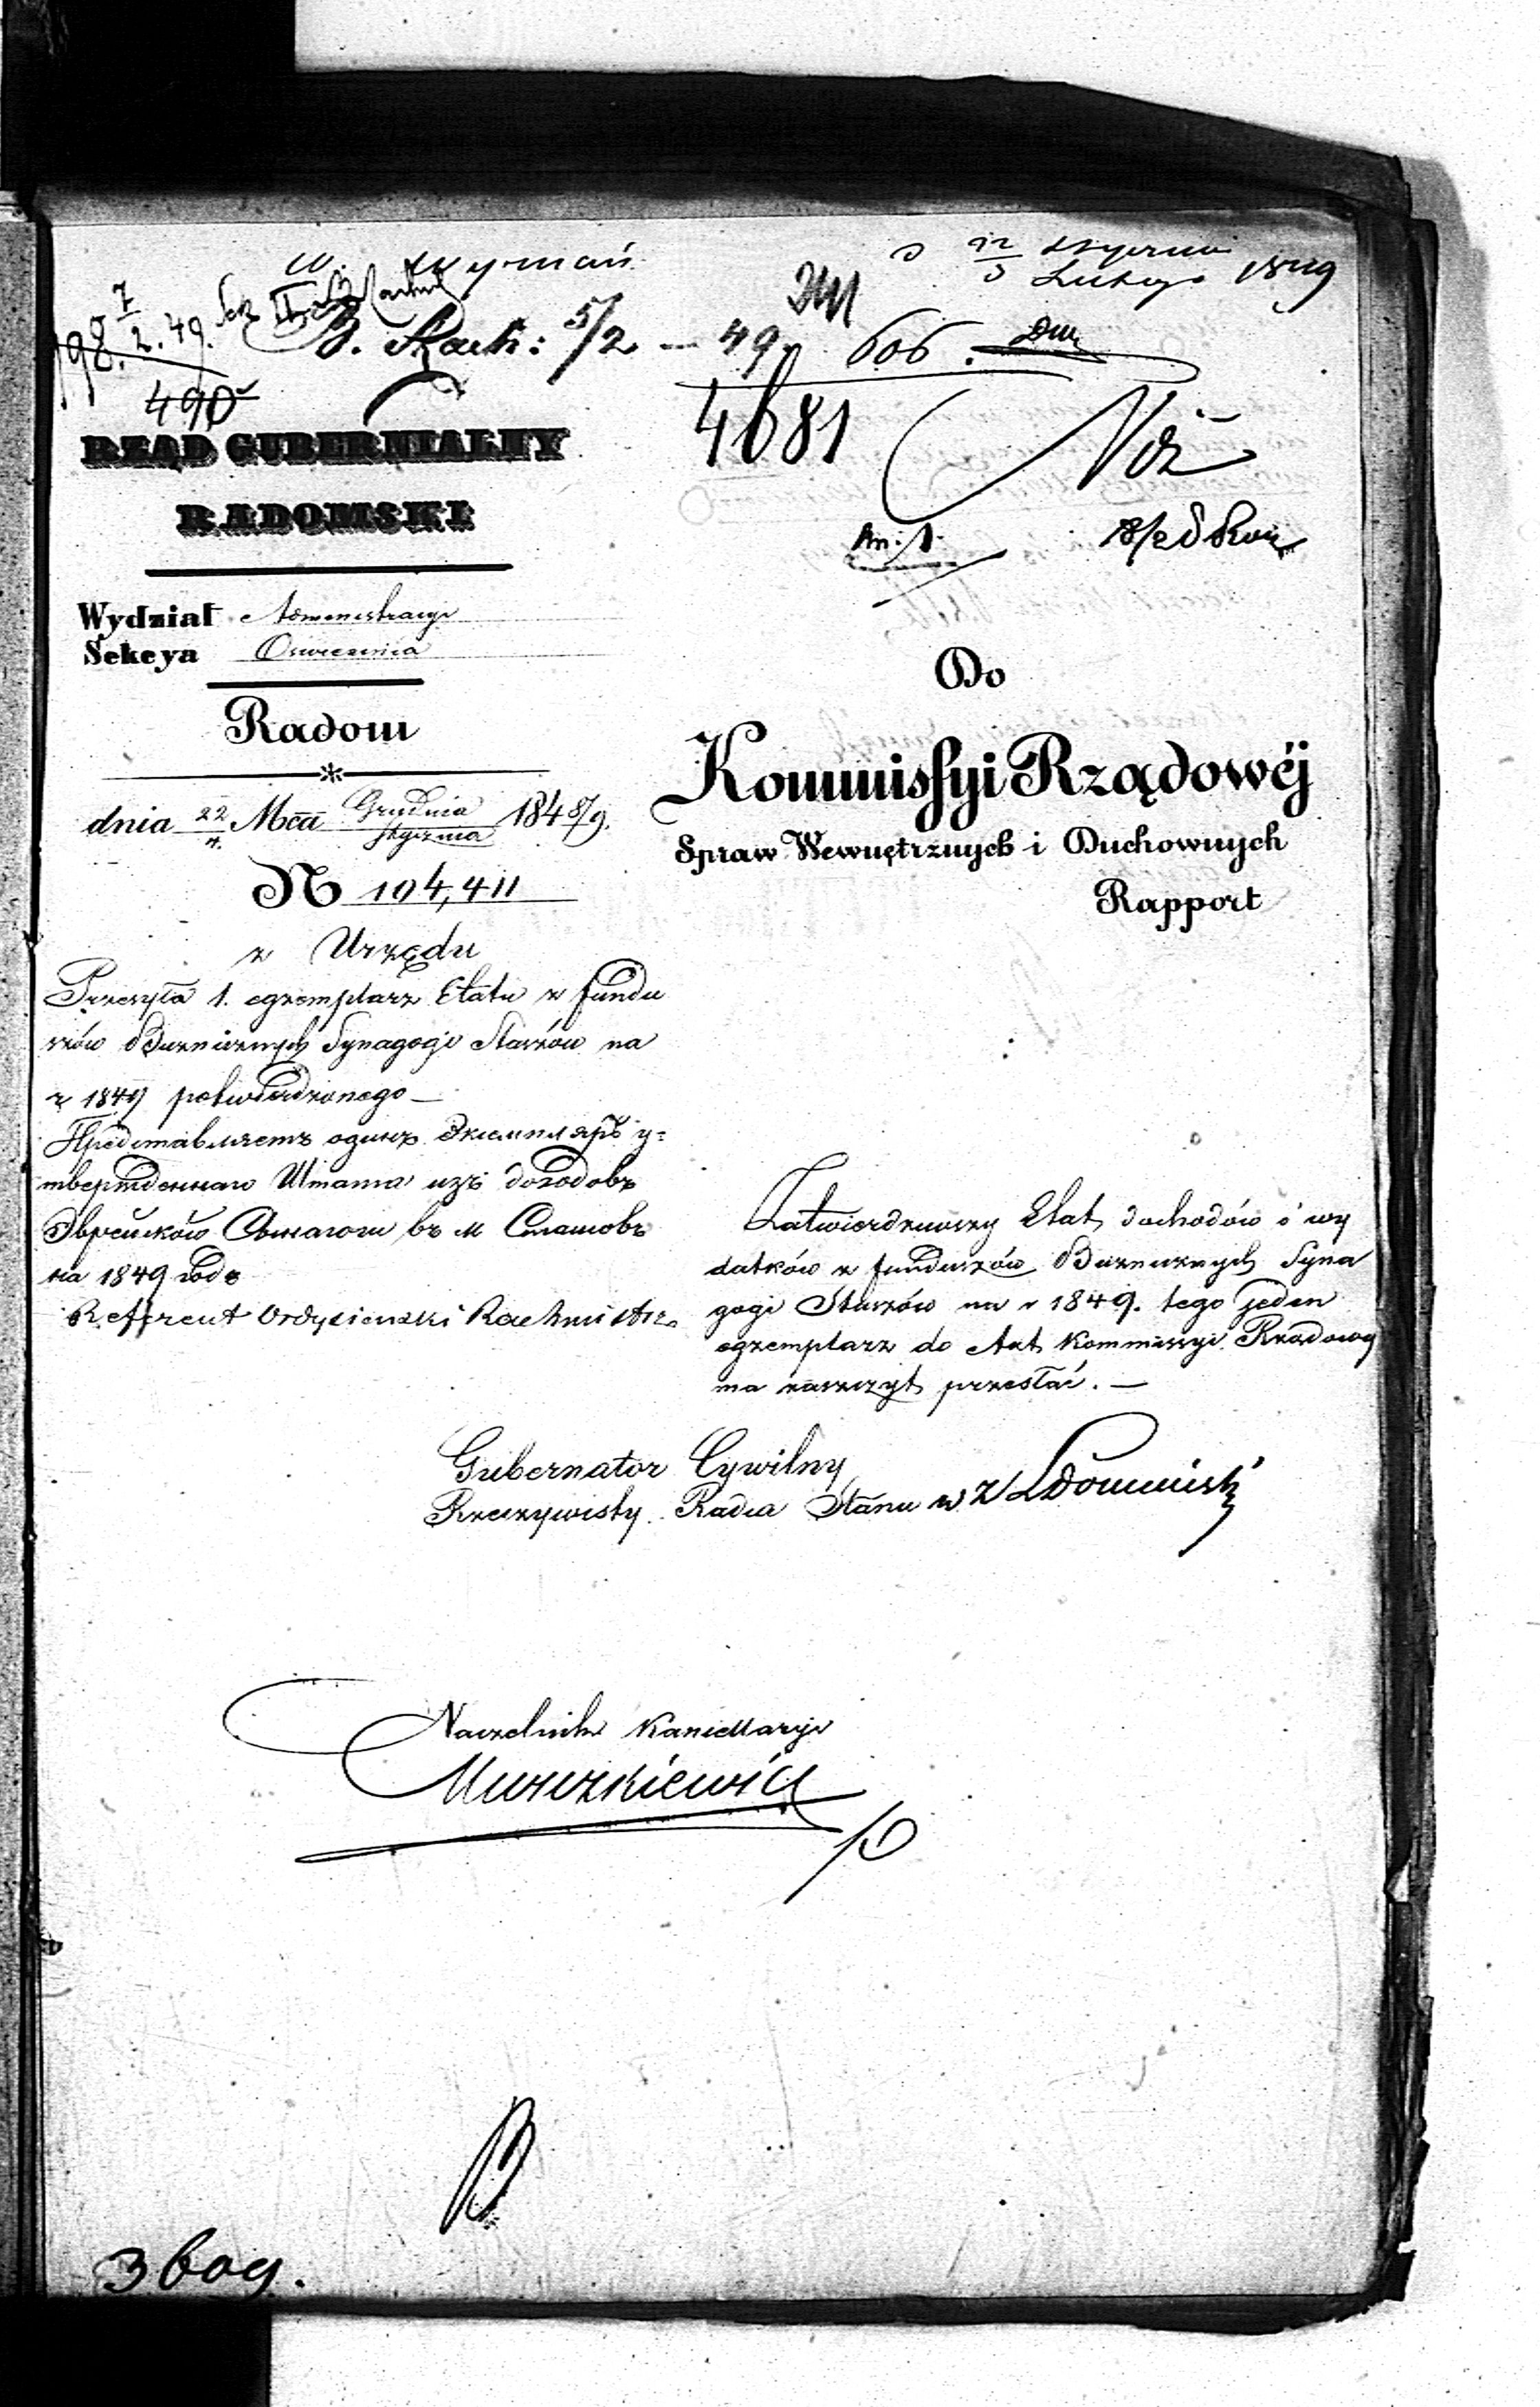 W. Wyznań
d 22 Stycznia
3 Lutego 1849
7
198. 2. 49.
490
B. Rach: 5/2 — 49. 606.
4681
An: 1.
RZĄD GUBERNIALNY
RADOMSKI
Wydział Administracyi
Sekcya Oswiecenia
Radom
dnia 22/4. Mca Grudnia/Stycznia 1848/9.
N 104,411
z Urzędu
Przesyła 1. egzemplarz Etatu z fundu
szów Bużniczych Synagogi Staszów na
r 1849 potwierdzonego —
Представляетъ одинъ Экземпляръ у=
твержденнаго Штата изъ доходовъ
Еврейской Синагоги въ м Сташовѣ
на 1849 годъ
Referent Ordysienski Rachmistrz
Do
Kommissyi Rządowéj
Spraw Wewnętrznych i Duchownych
Rapport
Zatwierdziwszy Etat dochodów i wy
datków z funduszów Bużniczych Syna
gogi Staszów na r 1849. tego jeden
egzemplarz do Akt Kommissyi Rządowej
ma zaszczyt przesłać. —
Gubernator Cywilny
Rzeczywisty Radca Stanu w z
Naczelnik Kancellaryi
3 bog.